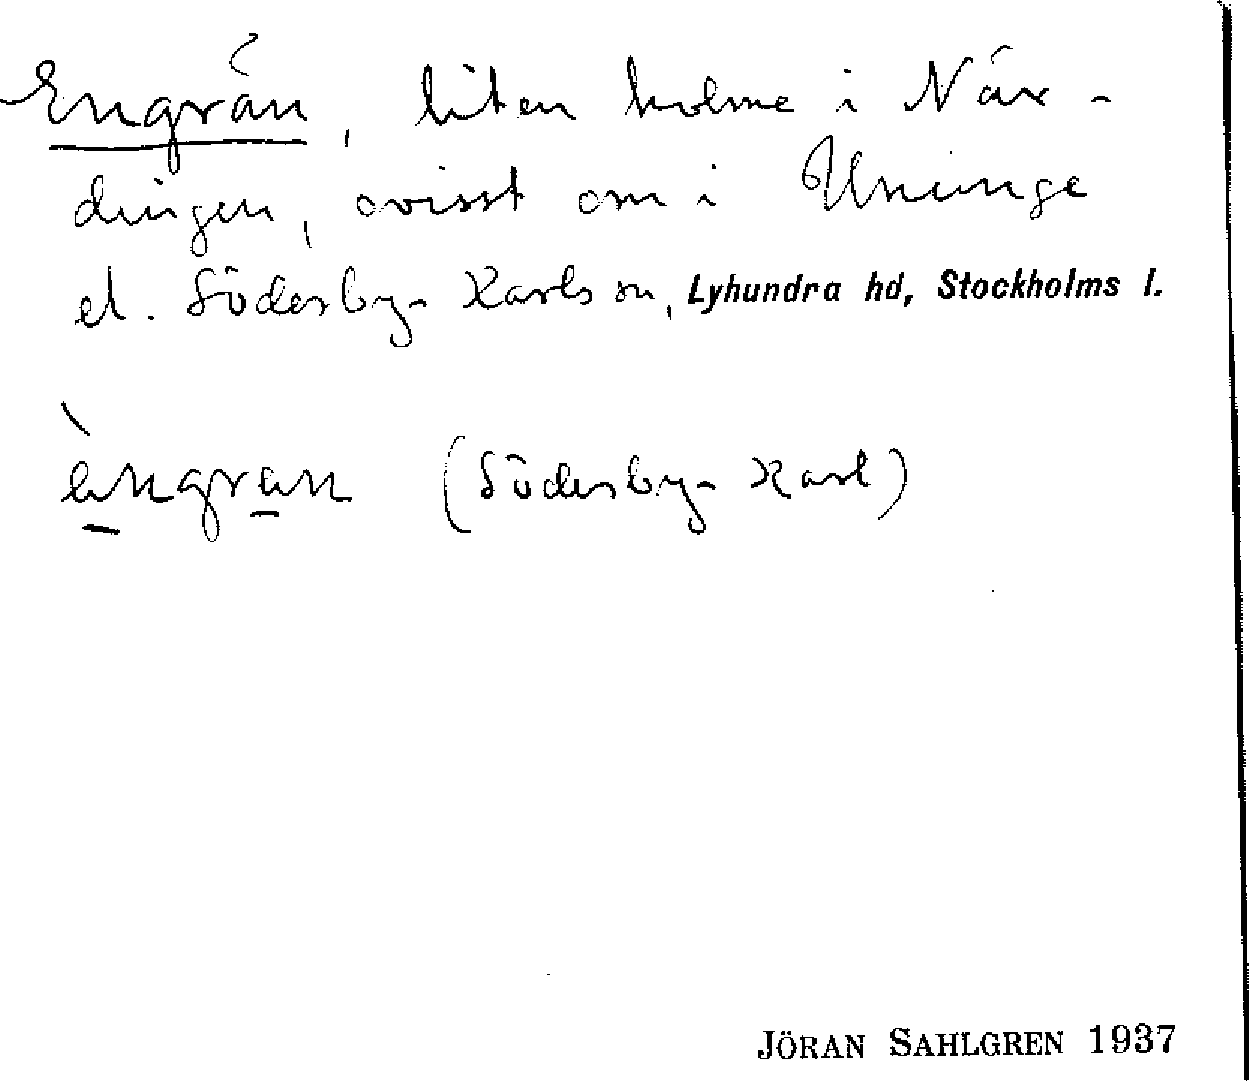 Engrän, liten holme i Når-
dingen, ovisst om i Ununge
el. Söderby-Karls sn, Lyhundra hd, Stockholms l.
èngran (Söderby-Karl)
JÖRAN SAHLGREN 1937